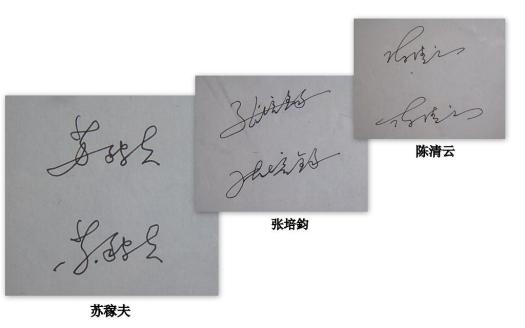 苏稼夫
苏稼夫
苏稼夫
张培鈞
张培鈞
张培鈞
陈清云
陈清云
陈清云